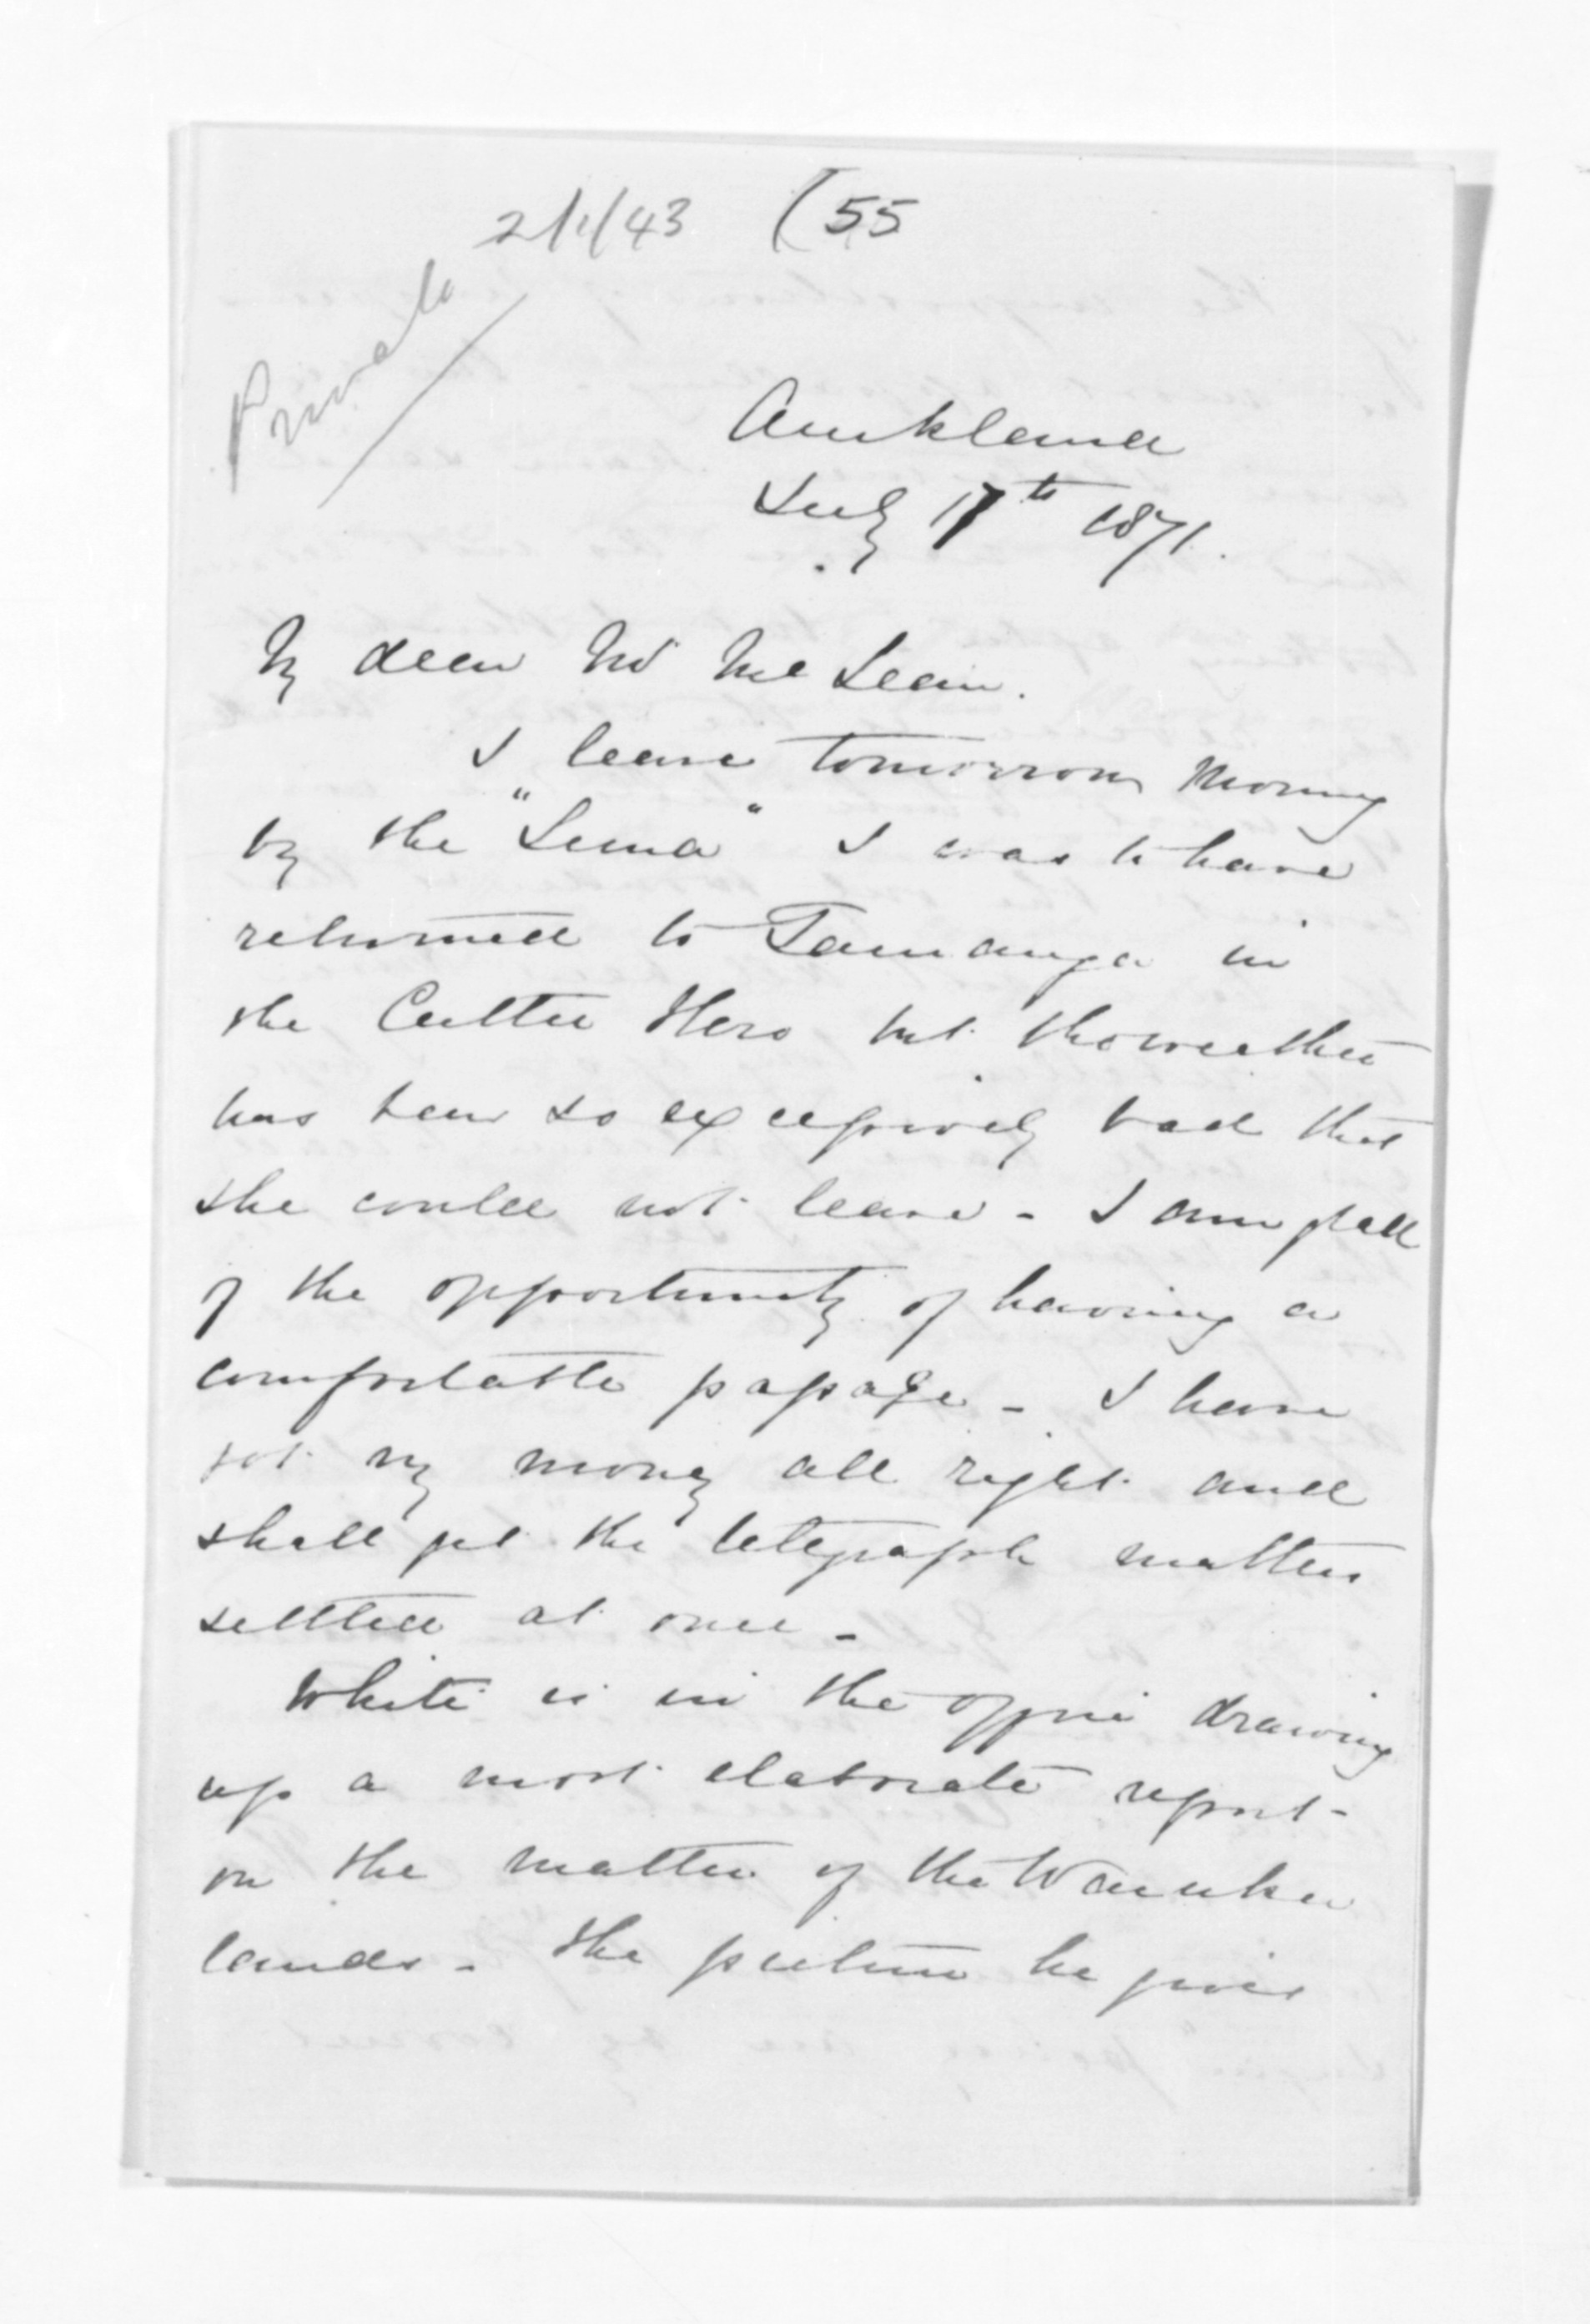 2/1/43 (55
Private
Auckland
July 17th 1871.
My dear Mr McLean.
I leave tomorrow morning
by the "Luna" I was to have
returned to Tauranga in
the Cutter Hero but the weather
has been so excessively bad that
she could not leave - I am glad
of the opportunity of having a
comfortable passage - I have
got my money all right and
shall get the telegraph matters
settled at once -
White is in the office drawing
up a most elaborate report -
on the matter of the Waiuku
lands - the picture he gives